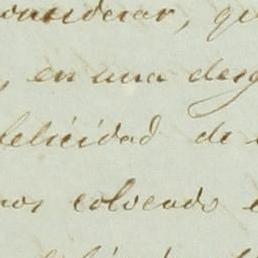 considerar, qu
, en una desg
felicidad de
nos colocado e